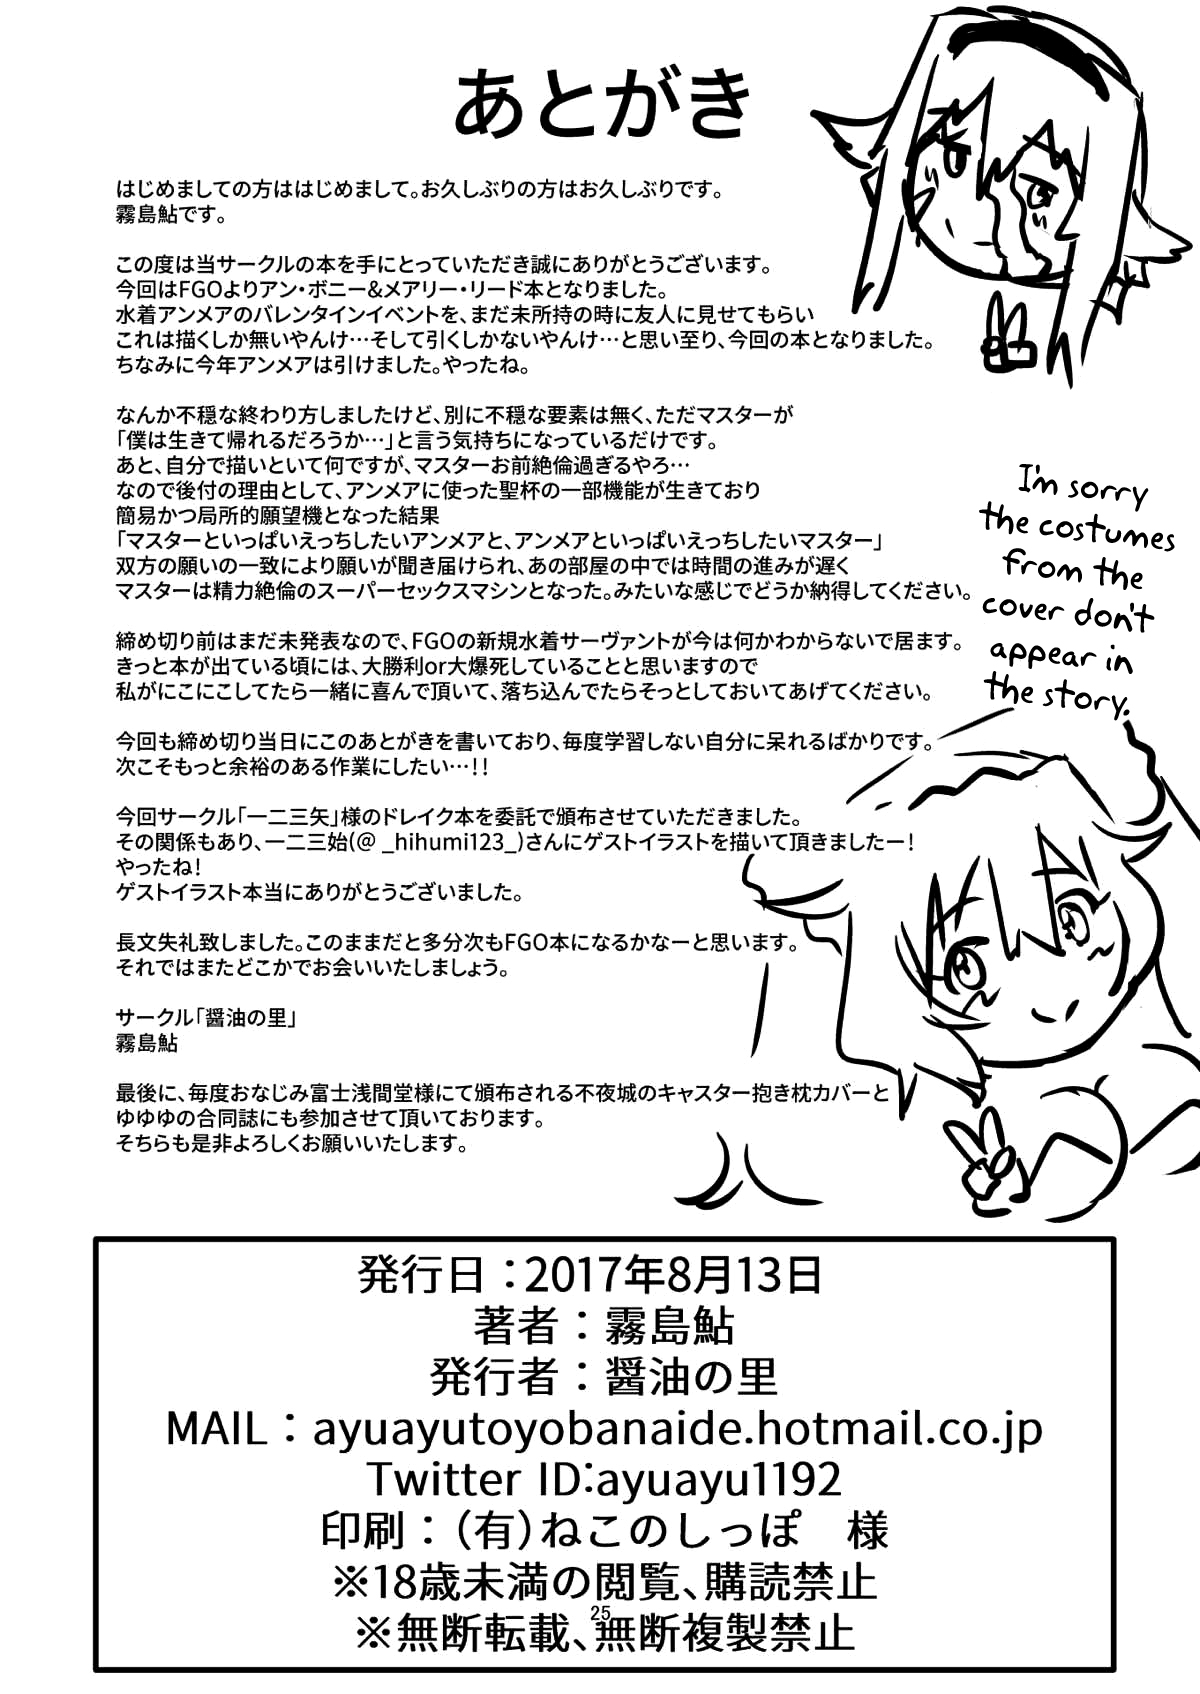 あとがき
はじめましての方ははじめまして。お久しぶりの方はお久しぶりです。
霧島鮎です。
この度は当サークルの本を手にとっていただき誠にありがとうございます。
今回はFGOよりアン・ボニー&メアリー・リード本となりました。
水着アンメアのバレンタインイベントを、まだ未所持の時に友人に見せてもらい
これは描くしか無いやんけ…そして引くしかないやんけ…と思い至り、今回の本となりました。
ちなみに今年アンメアは引けました。やったね。
なんか不穏な終わり方しましたけど、別に不穏な要素は無く、ただマスターが
「僕は生きて帰れるだろうか…」と言う気持ちになっているだけです。
あと、自分で描いといて何ですが、マスターお前絶倫過ぎるやろ…
なので後付の理由として、アンメアに使った聖杯の一部機能が生きており
簡易かつ局所的願望機となった結果
「マスターといっぱいえっちしたいアンメアと、アンメアといっぱいえっちしたいマスター」
双方の願いの一致により願いが聞き届けられ、あの部屋の中では時間の進みが遅く
マスターは精力絶倫のスーパーセックスマシンとなった。みたいな感じでどうか納得してください。
締め切り前はまだ未発表なので、FGOの新規水着サーヴァントが今は何かわからないで居ます。
きっと本が出ている頃には、大勝利or大爆死していることと思いますので
私がにこにこしてたら一緒に喜んで頂いて、落ち込んでたらそっとしておいてあげてください。
今回も締め切り当日にこのあとがきを書いており、毎度学習しない自分に呆れるばかりです。
次こそもっと余裕のある作業にしたい…!!
今回サークル「一二三矢」様のドレイク本を委託で頒布させていただきました。
その関係もあり、一二三始(@ _hihumi123_)さんにゲストイラストを描いて頂きましたー!
やったね!
ゲストイラスト本当にありがとうございました。
長文失礼致しました。このままだと多分次もFGO本になるかなーと思います。
それではまたどこかでお会いいたしましょう。
サークル「醤油の里」
霧島鮎
最後に、毎度おなじみ富士浅間堂様にて頒布される不夜城のキャスター抱き枕カバーと
ゆゆゆの合同誌にも参加させて頂いております。
そちらも是非よろしくお願いいたします。
I'm sorry
the costumes
from the
cover don't
appear in
the story.
発行日:2017年8月13日
著者:霧島鮎
発行者:醤油の里
MAIL:ayuayutoyobanaide.hotmail.co.jp
Twitter ID:ayuayu1192
印刷:(有)ねこのしっぽ 様
※18歳未満の閲覧、購読禁止
※無断転載、無断複製禁止
25